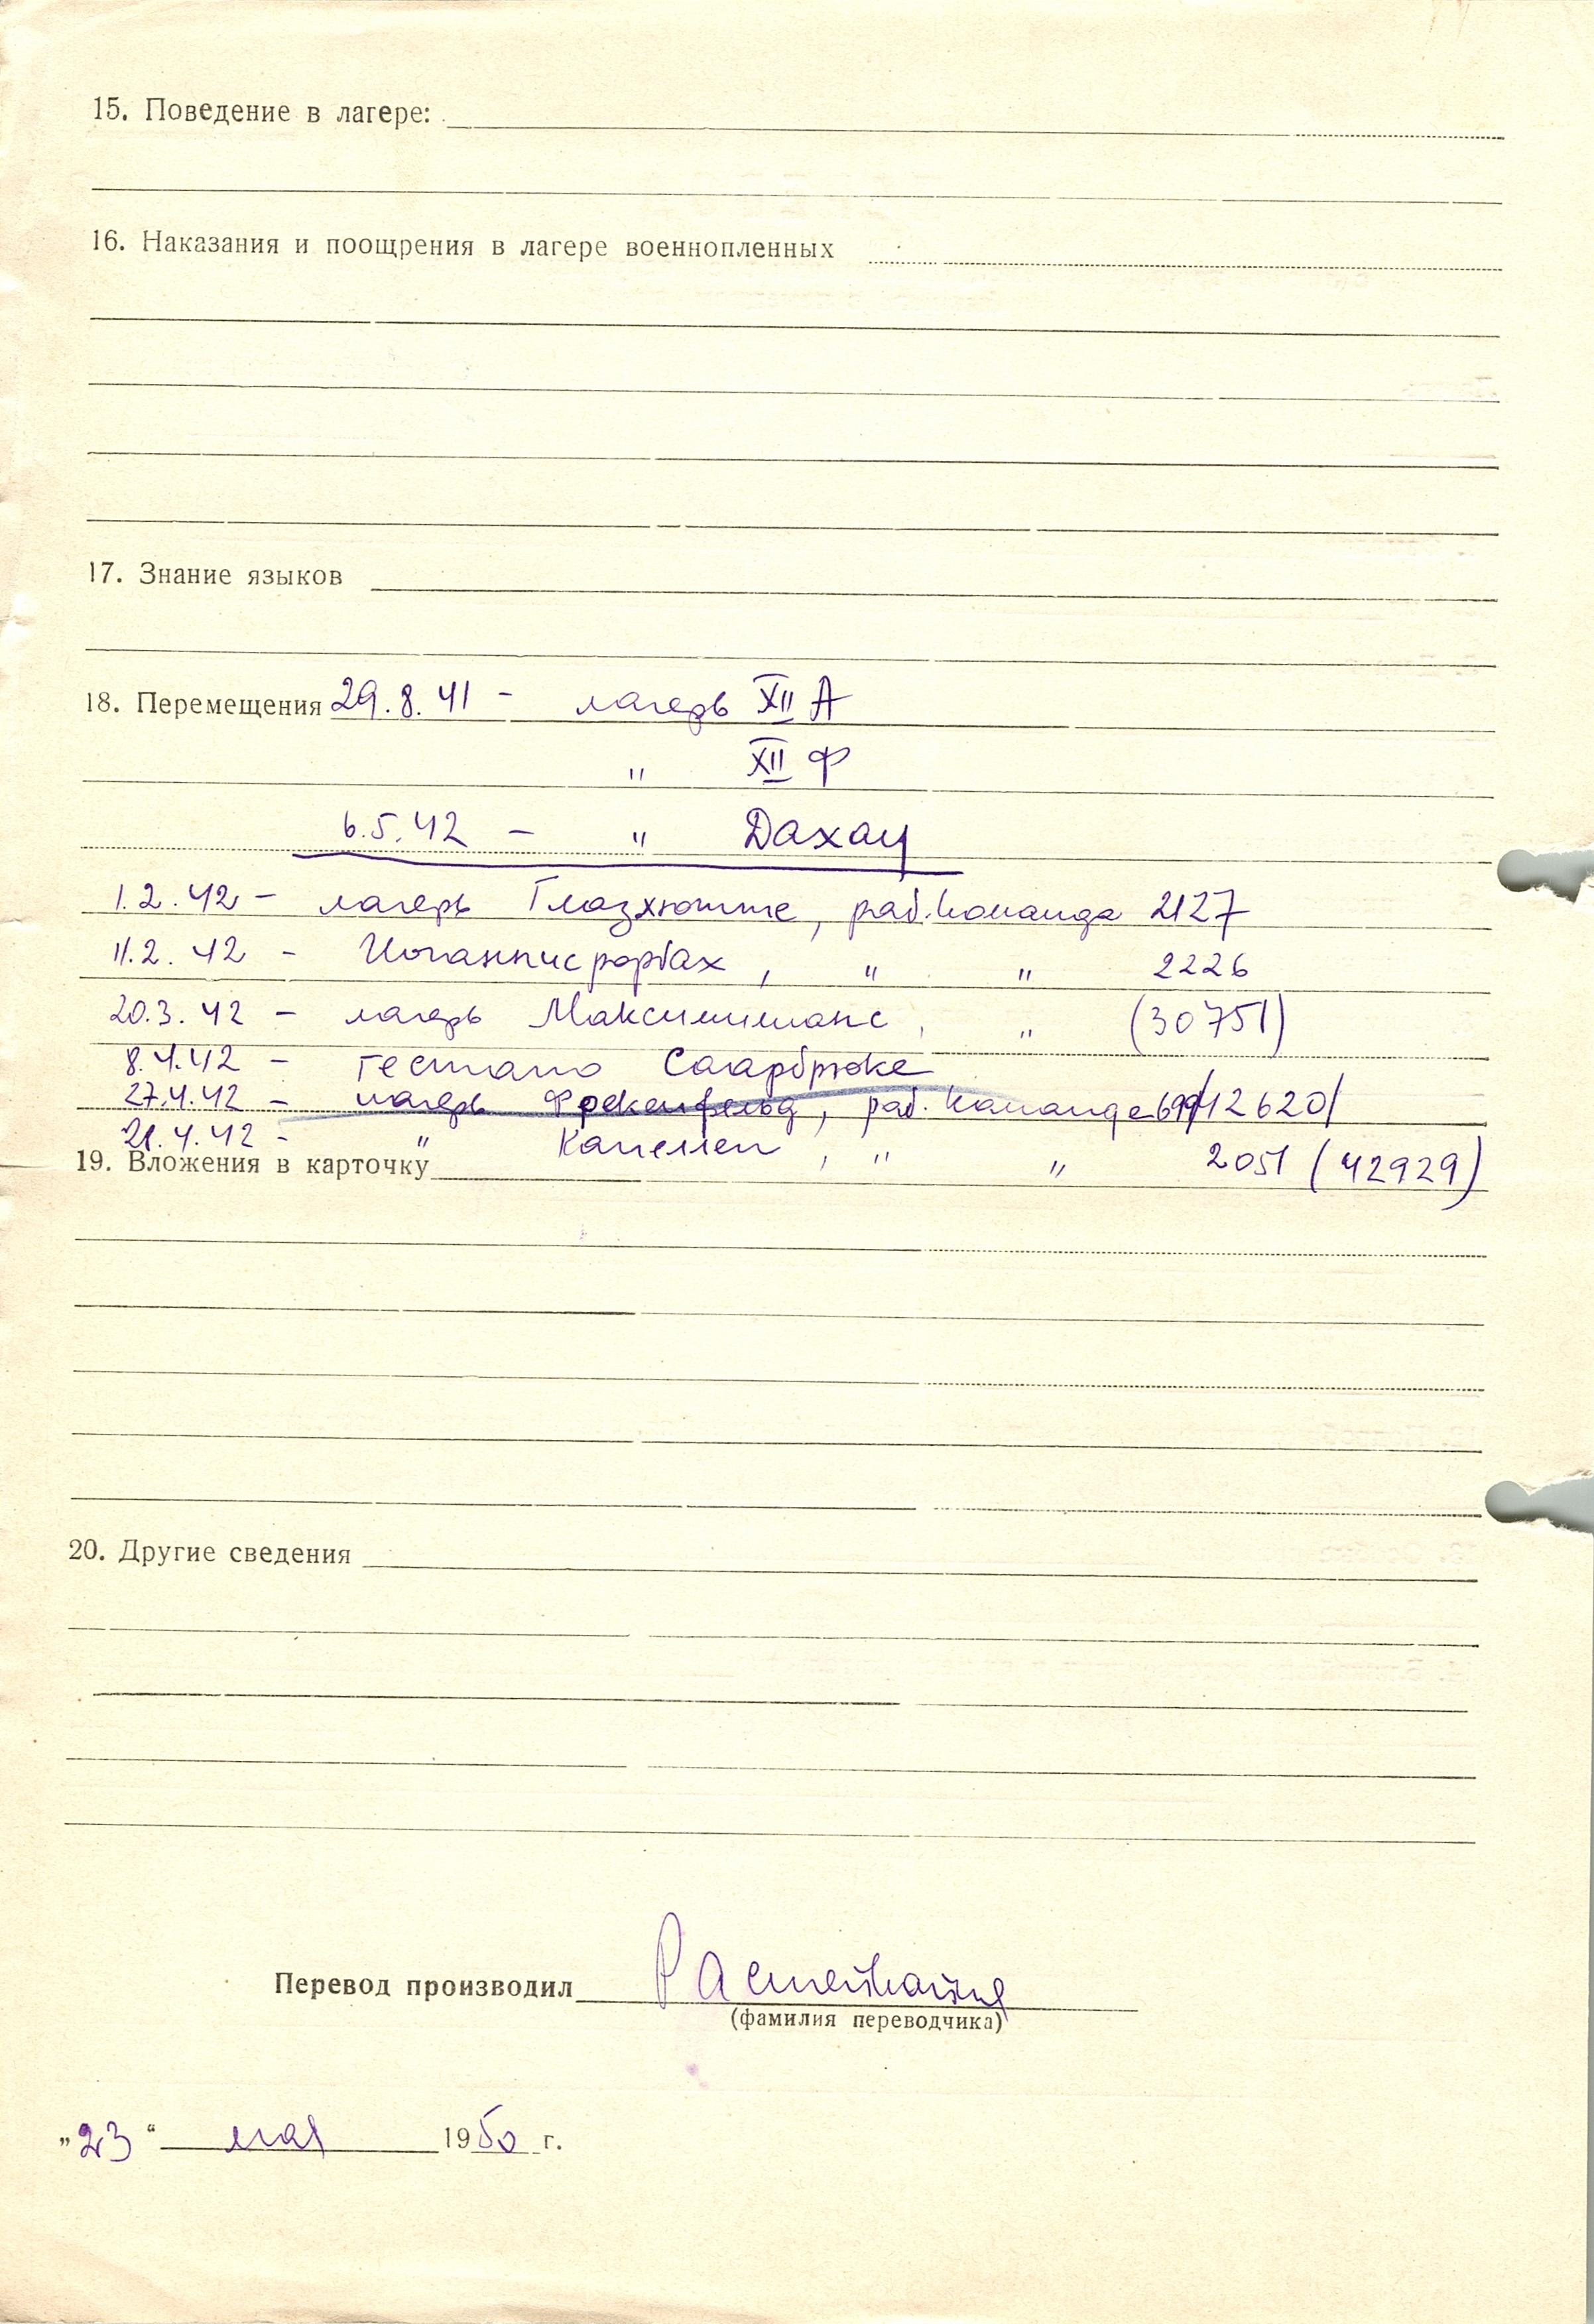 15. Поведение в лагере:
16. Наказания и поощрения в лагере военнопленных
17. Знание языков
18. Перемещения 29.8.41 - лагерь XII А
" XII Ф
6.5.42 - " Дахау
1.2.42 - лагерь Глазхютте, раб. команда 2127
11.2.42 - Иоганнисрорбах, " " 2226
20.3.42 - лагерь Максимилианс, " (30751)
8.4.42 - гестапо Саарбрюке
27.4.42 - лагерь Фрекенфельд, раб. команда /12620/
21.4.42 - " Капеллен, " " 2051 (42929)
19. Вложения в карточку
20. Другие сведения
Перевод производил
(фамилия переводчика)
„23“ мая 1950 г.